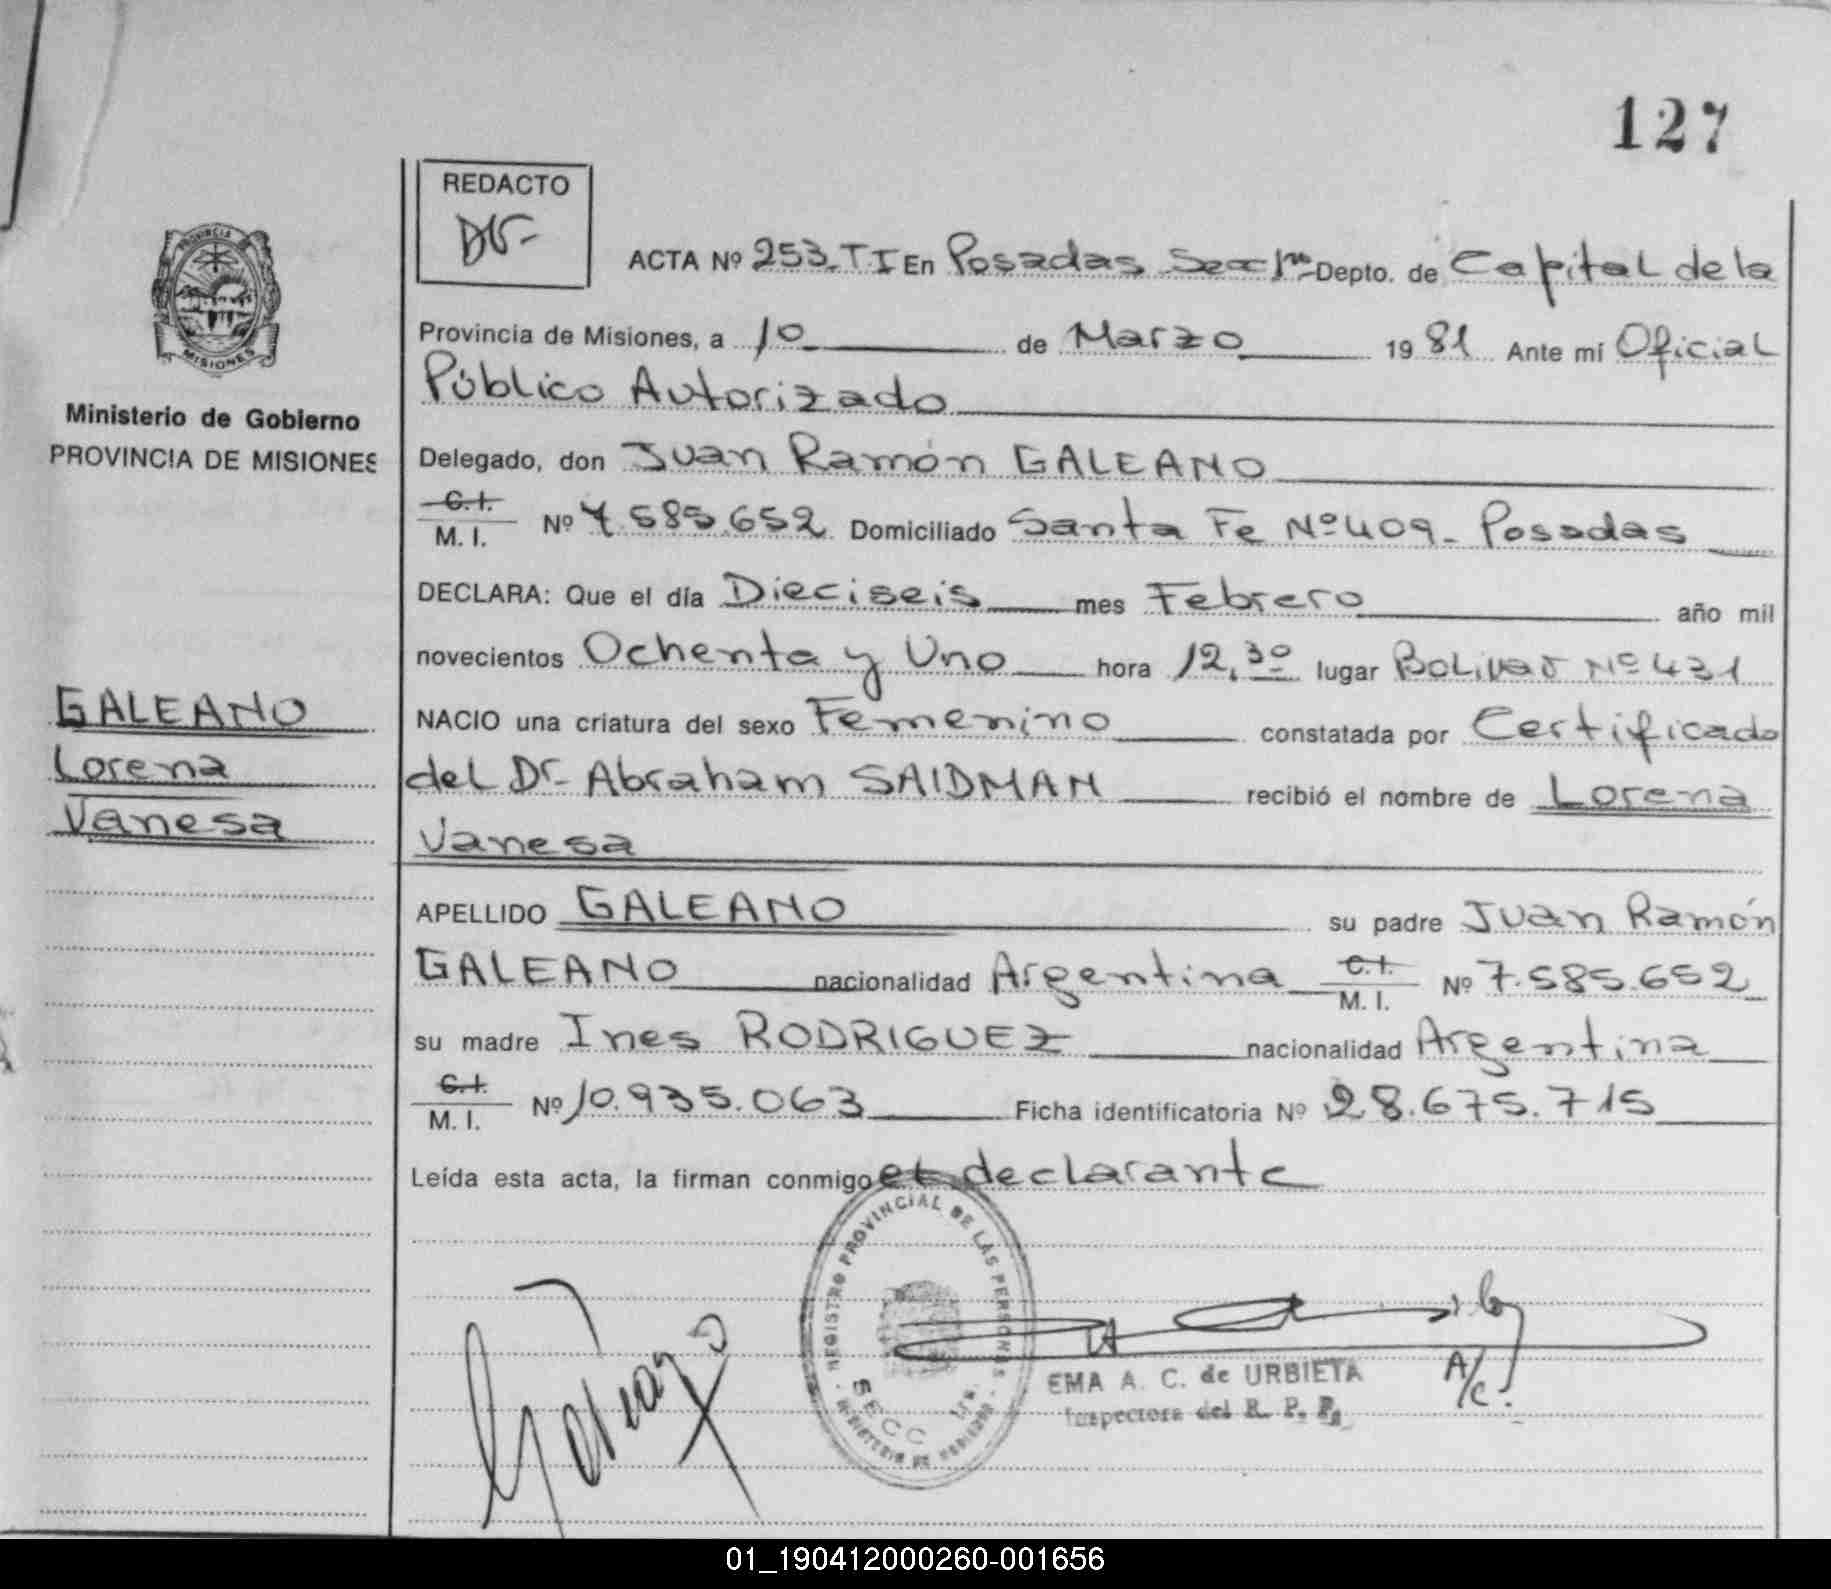 127
REDACTO
ACTA Nº 253. T I En Posadas Secc 1ra Depto. de Capital de la
PROVINCIA DE
MISIONES
Provincia de Misiones, a 10 de Marzo 1981 Ante mí Oficial
Público Autorizado
Ministerio de Gobierno
PROVINCIA DE MISIONES
Delegado, don Juan Ramón GALEANO
C.I.
M. I. Nº 7.585.652 Domiciliado Santa Fe Nº 409 - Posadas
DECLARA: Que el día Dieciseis mes Febrero año mil
novecientos Ochenta y Uno hora 12,30 lugar Bolivar Nº 431
GALEANO
Lorena
Vanesa
NACIO una criatura del sexo Femenino constatada por Certificado
del Dr. Abraham SAIDMAN recibió el nombre de Lorena
Vanesa
APELLIDO GALEANO su padre Juan Ramón
GALEANO nacionalidad Argentina C.I. M. I. Nº 7.585.652
su madre Ines RODRIGUEZ nacionalidad Argentina
C.I.
M. I. Nº 10.935.063 Ficha identificatoria Nº 28.675.715
Leída esta acta, la firman conmigo el declarante
REGISTRO PROVINCIAL DE LAS PERSONAS
SECC 1ra.
MINISTERIO DE GOBIERNO
EMA A. C. de URBIETA
Inspectora del R. P. P.
A/C.
01_190412000260-001656